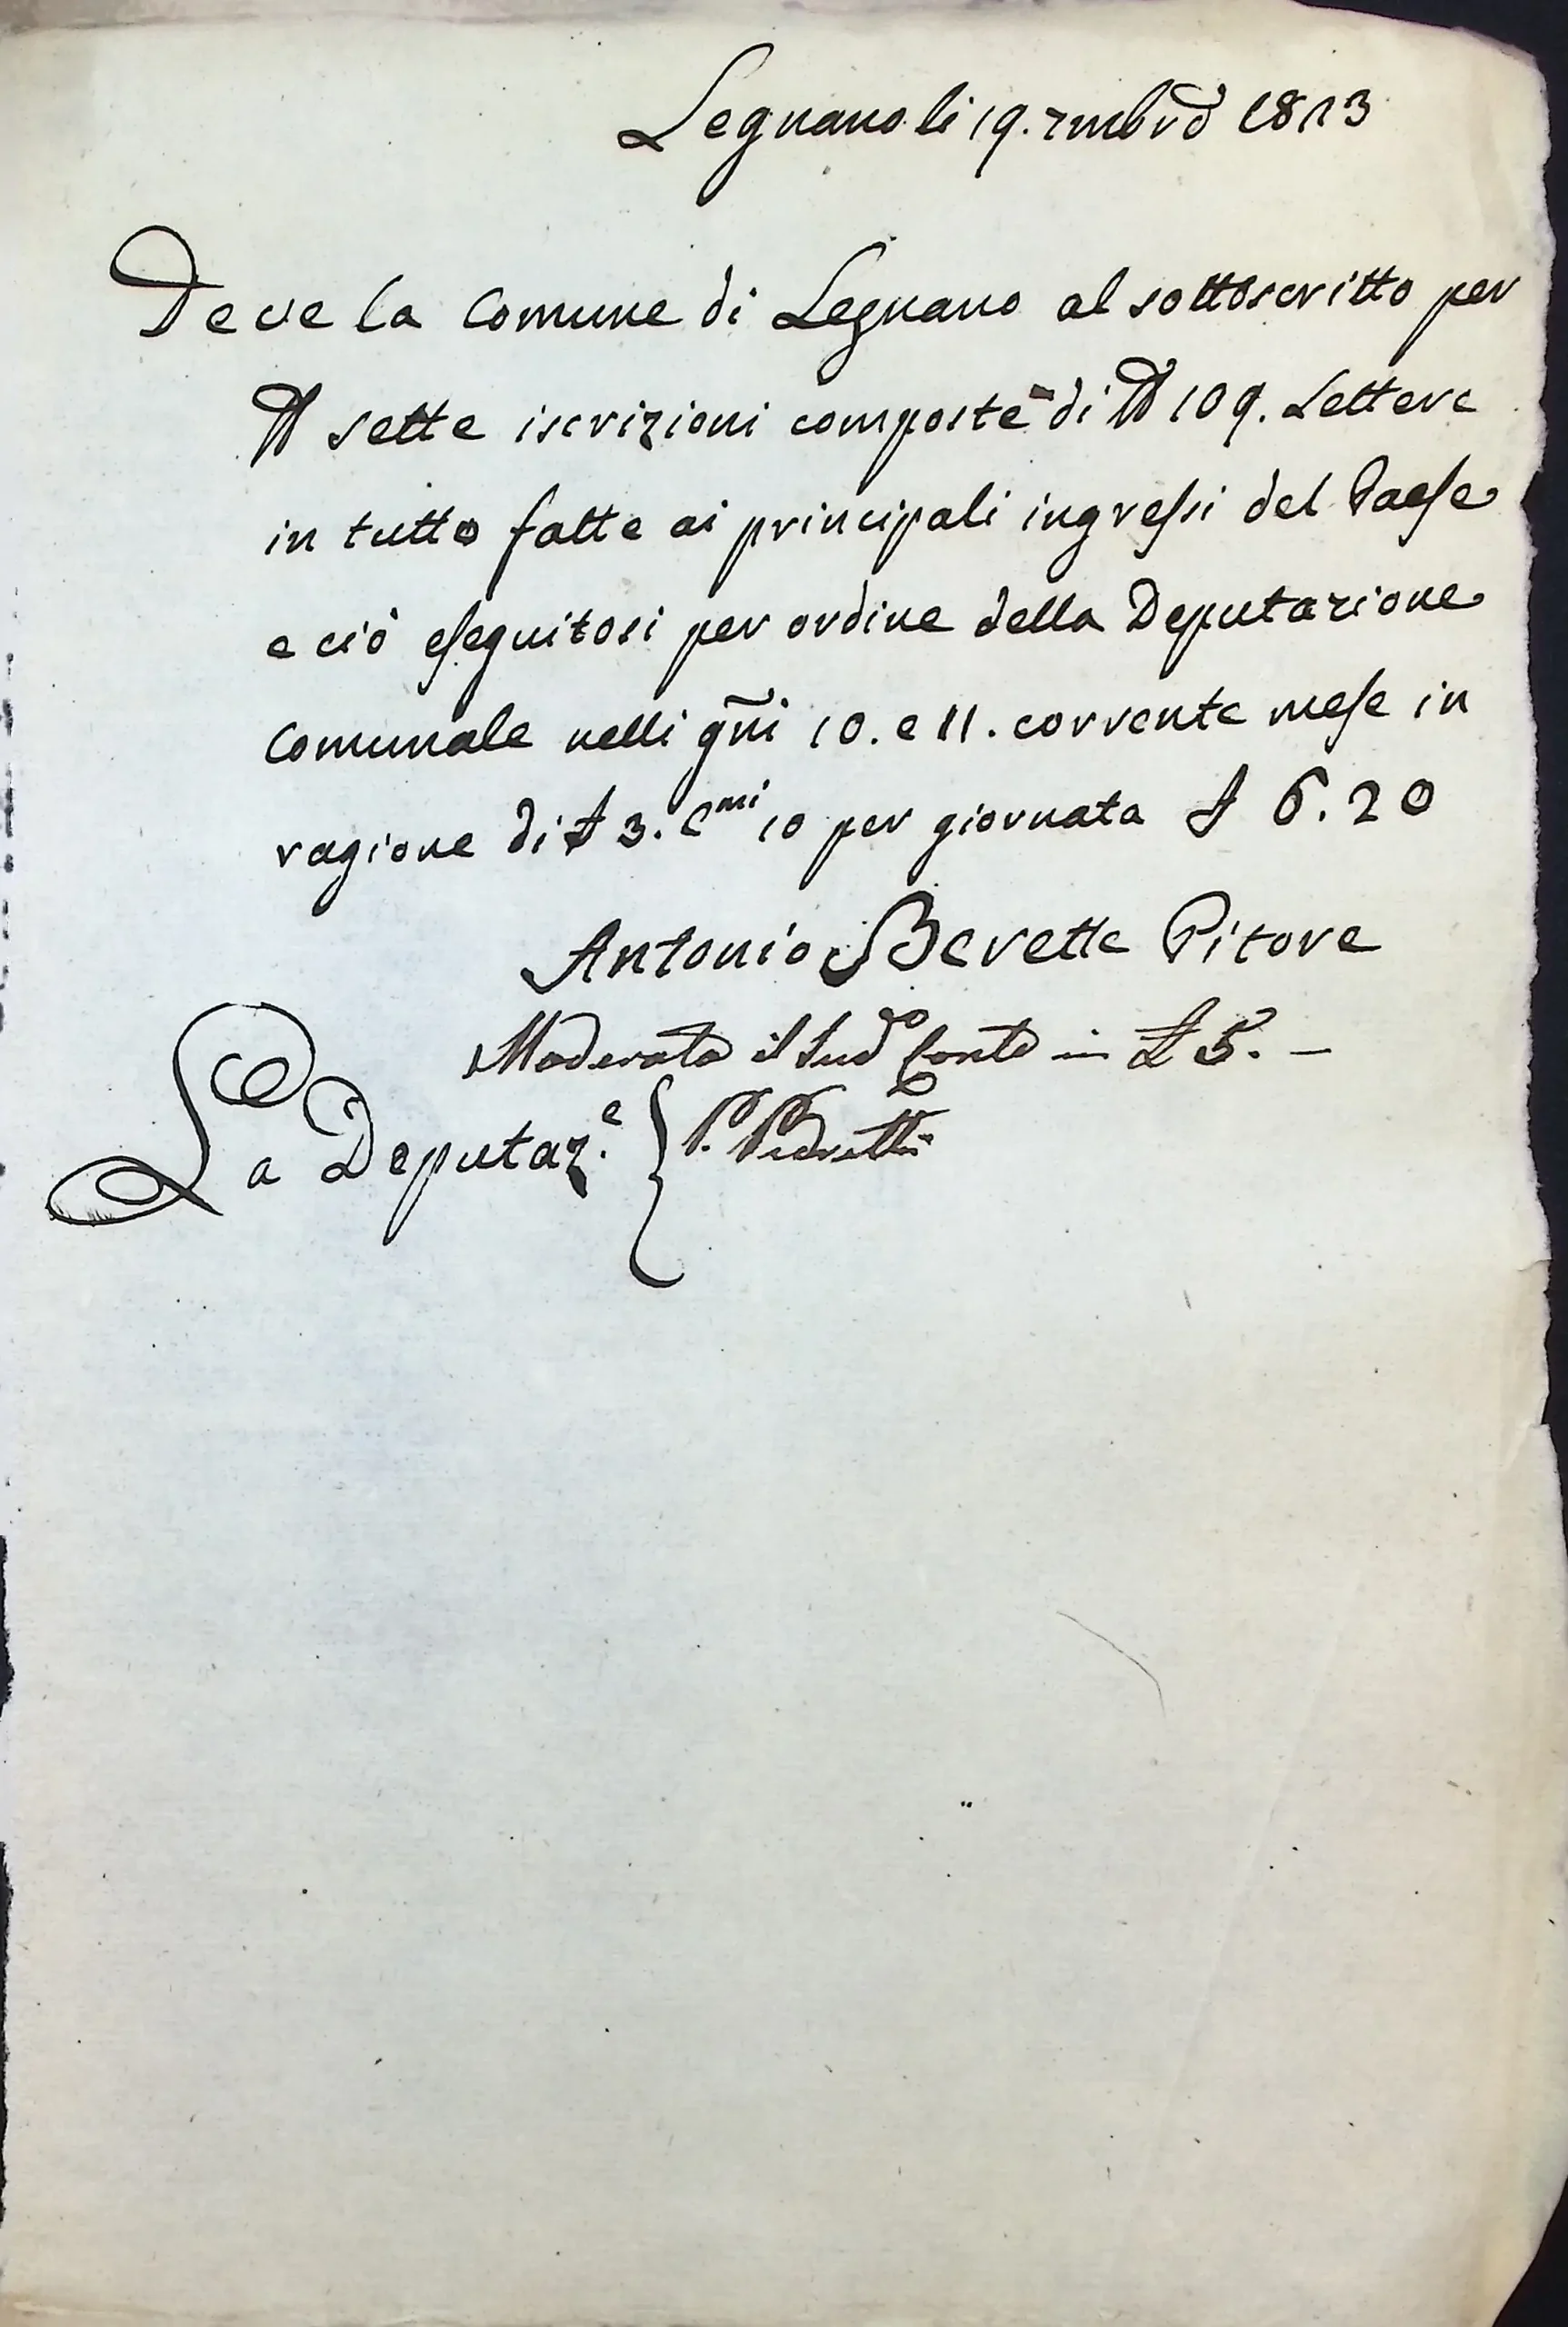 Legnano li 19. 7mbre 1823
Deve la Comune di Legnano al sottoscritto per
N sette iscrizioni composte di N 109. Lettere
in tutto fatte ai principali ingressi del Paese
e ciò eseguitosi per ordine della Deputazione
Comunale nelli gni 10. e 11. corrente mese in
ragione di £ 3. Cmi 10 per giornata £ 6.20
Antonio Berette Pitore
Moderato il sudo Conto in £ 5. —
La Deputaz.e { P. Pedretti